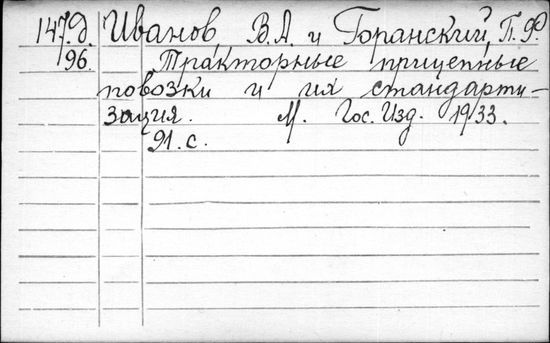 147.д. Иванов, В.А. и Горанский, П.Ф
96. Тракторные прицепные
повозки и их стандарти-
зация. М. Гос. Изд. 1933.
91. с.